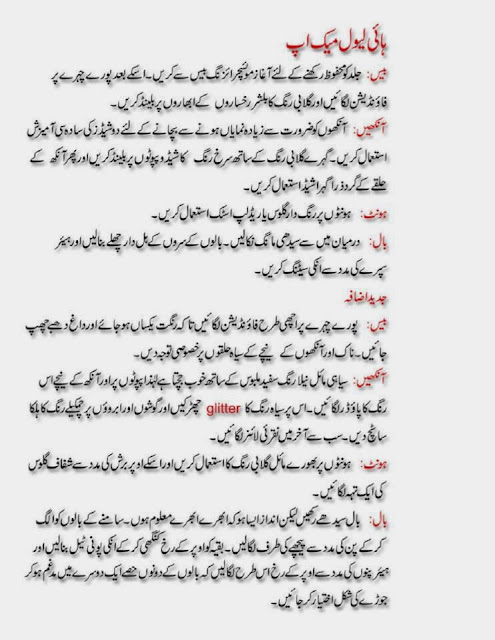 ہائی لیول میک اپ
بیس: جلد کو محفوظ رکھنے کے لئے آغاز موئسچرائزنگ بیس سے کریں۔ اسکے بعد پورے چہرے پر
فاؤنڈیشن لگائیں اور گلابی رنگ کا بلشر رخساروں کے ابھاروں پر بلینڈ کریں۔
آنکھیں: آنکھوں کو ضرورت سے زیادہ نمایاں ہونے سے بچانے کے لئے دو شیڈز کی سادہ سی آمیزش
استعمال کریں۔ گہرے گلابی رنگ کے ساتھ سرخ رنگ کا شیڈ و پپوٹوں پر بلینڈ کریں اور پھر آنکھ کے
حلقے کے گرد ذرا گہرا شیڈ استعمال کریں۔
ہونٹ: ہونٹوں پر رنگ دار گلوس یا ریڈ لپ اسٹک استعمال کریں۔
بال: درمیان میں سے سیدھی مانگ نکالیں۔ بالوں کے سروں کے بل دار چھلے بنالیں اور ہیئر
سپرے کی مدد سے انکی سیٹنگ کریں۔
جدید اضافہ
بیس: پورے چہرے پر اچھی طرح فاؤنڈیشن لگائیں تاکہ رنگت یکساں ہو جائے اور داغ دھبے چھپ
جائیں۔ ناک اور آنکھوں کے نیچے کے سیاہ حلقوں پر خصوصی توجہ دیں۔
آنکھیں: سیاہی مائل نیلا رنگ سفید ملبوس کے ساتھ خوب جچتا ہے لہٰذا پپوٹوں پر اور آنکھ کے نیچے اس
رنگ کا پاؤڈر لگائیں۔ اس پر سیاہ رنگ کا glitter چھڑکیں اور گوشوں اور ابروؤں پر چمکیلے رنگ کا ہلکا
سا ٹچ دیں۔ سب سے آخر میں نقرئی لائنر لگائیں۔
ہونٹ: ہونٹوں پر بھورے مائل گلابی رنگ کا استعمال کریں اور اسکے اوپر برش کی مدد سے شفاف گلوس
کی ایک تہہ لگائیں۔
بال: بال سیدھے رکھیں لیکن انداز ایسا ہو کہ ابھرے ابھرے معلوم ہوں۔ سامنے کے بالوں کو الگ
کر کے پن کی مدد سے پیچھے کی طرف لگالیں۔ بقیہ کو اوپر کے رخ کنگھی کر کے انکی پونی ٹیل بنالیں اور
ہیئر پنوں کی مدد سے اوپر کے رخ اس طرح لگالیں کہ بالوں کے دونوں حصے ایک دوسرے میں مدغم ہو کر
جوڑے کی شکل اختیار کر جائیں۔